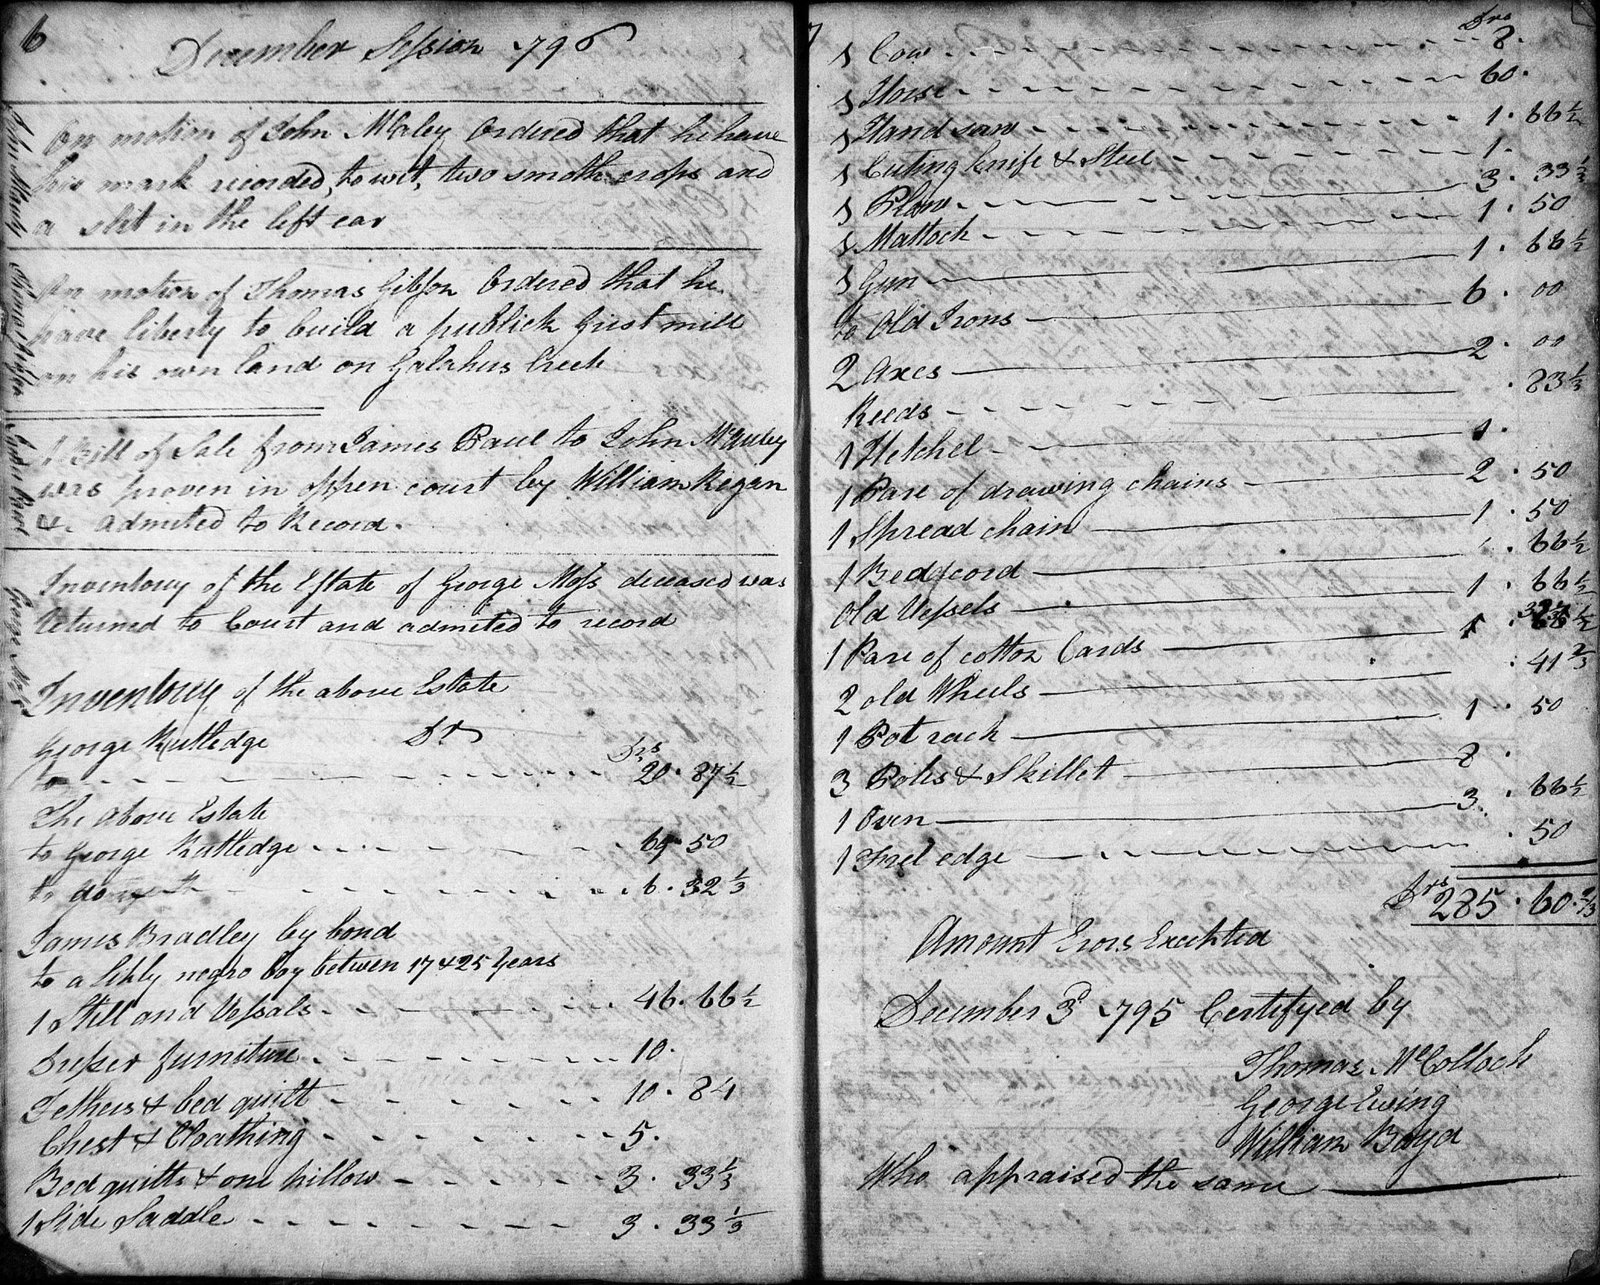 6
December Session 1796
John Mcaley
On motion of John Mcaley Ordered that he have
his mark recorded, to wit, two smoth crops and
a slit in the left ear
Thomas Gibson
On motion of Thomas Gibson Ordered that he
have liberty to build a publick Grist mill
on his own land on Galahers Creek
A Bill of Sale from James Paul to John McAuley
was proven in oppen court by William Regan
& admited to Record.
George Moss
Inventory of the Estate of George Moss deceased was
Returned to Court and admited to record
Inventory of the above Estate
George Rutledge Dr
to Drs 20. 87½
The above Estate
to George Rutledge 69. 50
to do 6. 32⅓
James Bradley by bond
to a likly negro boy betwen 17 & 25 Years
1 Still and Vessals 46. 66½
Dresser furniture 10.
Fethers & bed quilt 10. 84
Chest & Cloathing 5.
Bed quilts & one pillow 3. 33⅓
1 Side Saddle 3. 33⅓
7
Drs
1 Cow 8.
1 Horse 60.
1 Hand saw 1. 66½
1 Cuting knife & Steel 1.
1 Plow 3. 33⅓
1 Mattock 1. 50
1 Gun 1. 66½
to Old Irons 6. 00
2 Axes 2. 00
Reeds . 83⅓
1 Hetchel 1.
1 Pare of drawing chains 2. 50
1 Spread chain 1. 50
1 Bedcord . 66½
Old Vessels 1. 66½
1 Pare of cotton Cards 1.
2 old Wheels . 41⅔
1 Pot rack 1. 50
3 Pots & Skillet 8.
1 Oven 3. 66½
1 Fret edge . 50
Drs 285. 60.⅔
Amount Erors Excehted
December 3d 1795 Certifyed by
Thomas McColloch
George Ewing
William Boyd
Who appraised the same